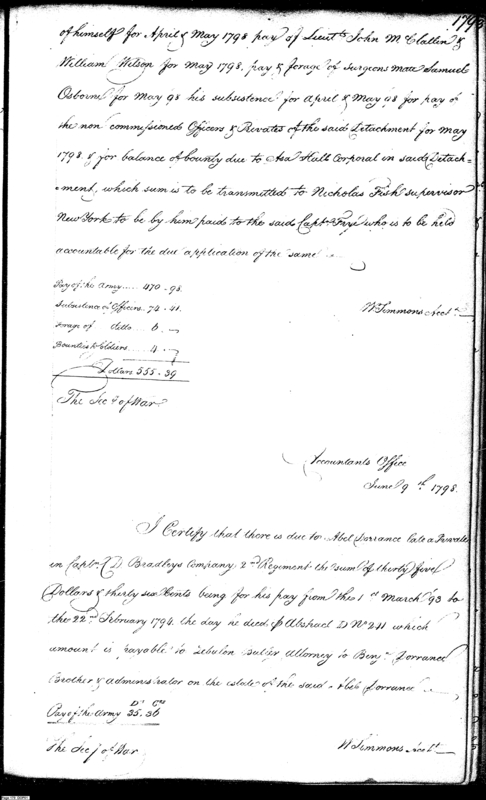 1798
of himself for April & May 1798 pay of Lieut.ts John McClallin &
William Wilson for May 1798, pay & forage of Surgeons mate Samuel
Osborne for May 98 his subsistence for April & May 98 for pay of
the non commissioned Officers & Privates of the said Detachment for May
1798. & for balance of bounty due to Asa Hall Corporal in said Detach-
-ment, which sum is to be transmitted to Nicholas Fish Supervisor
New York to be by him paid to the said Capt.n Frye who is to be held
accountable for the due application of the same
Pay of the Army .... 470 - 98
Subsistence of Officers .. 74 - 41
Forage of ditto .. 6 . -
Bounties to Soldiers .... 4 . -
Dollars 555 . 39
Wm Simmons Acct.
The Sec.y of War
Accountants Office
June 9th 1798.
I Certify that there is due to Abel Dorrance late a Private
in Capt.n D Bradleys Company 2nd Regiment the sum of thirty five
Dollars & thirty six Cents being for his pay from the 1st March '93 to
the 22nd February 1794. the day he died, p Abstract D No 241 which
amount is payable to Zebulon Butler Attorney to Benj.n Dorrance
Brother & administrator on the estate of the said Abel Dorrance
Ds Cts
Pay of the Army 35.36
The Secy of War
W Simmons Acct.